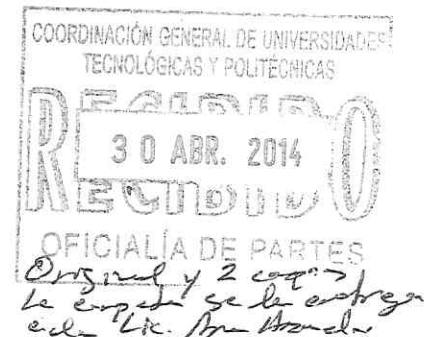 COORDINACIÓN GENERAL DE UNIVERSIDADES
TECNOLÓGICAS Y POLITÉCNICAS
RECIBIDO
30 ABR. 2014
RECIBIDO
OFICIALÍA DE PARTES
Original y 2 copias
la carpeta se le entrega
a la Lic. Ana